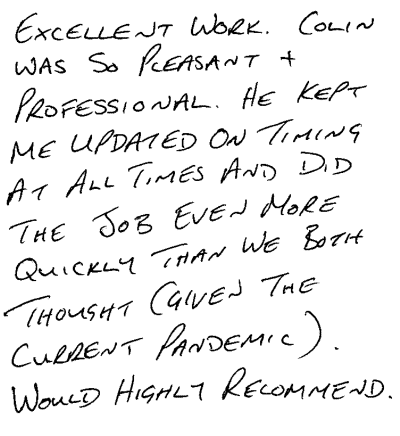 EXCELLENT WORK. COLIN
WAS SO PLEASANT +
PROFESSIONAL. HE KEPT
ME UPDATED ON TIMING
AT ALL TIMES AND DID
THE JOB EVEN MORE
QUICKLY THAN WE BOTH
THOUGHT (GIVEN THE
CURRENT PANDEMIC).
WOULD HIGHLY RECOMMEND.